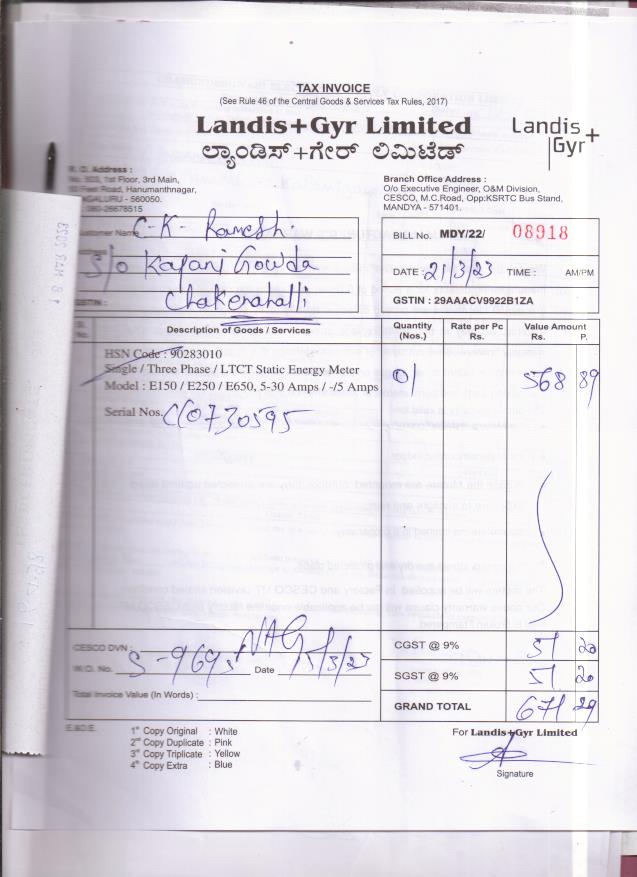 TAX INVOICE
(See Rule 46 of the Central Goods & Services Tax Rules, 2017)
Landis+Gyr Limited
ಲ್ಯಾಂಡಿಸ್+ಗೇರ್ ಲಿಮಿಟೆಡ್
Landis+
Gyr
Address :
1st Floor, 3rd Main,
Feet Road, Hanumanthnagar,
- 560050.
080-26678515
Branch Office Address :
O/o Executive Engineer, O&M Division,
CESCO, M.C.Road, Opp:KSRTC Bus Stand,
MANDYA - 571401.
Customer Name C-K- Ramesh.
S/o Kapani Gowda
Chakenahalli
GSTIN :
BILL No. MDY/22/ 08918
DATE : 21/3/23 TIME : AM/PM
GSTIN : 29AAACV9922B1ZA
Sl. No. Description of Goods / Services Quantity (Nos.) Rate per Pc Rs. Value Amount Rs. P.
HSN Code : 90283010
Single / Three Phase / LTCT Static Energy Meter
Model : E150 / E250 / E650, 5-30 Amps / -/5 Amps 01 568 89
Serial Nos. CC0730595
CESCO DVN : NAG
W.O. No. S-969 Date 15/3/23
Total Invoice Value (In Words) :
CGST @ 9% 51 20
SGST @ 9% 51 20
GRAND TOTAL 671 29
E.&O.E.
1st Copy Original : White
2nd Copy Duplicate : Pink
3rd Copy Triplicate : Yellow
4th Copy Extra : Blue
For Landis+Gyr Limited
Signature